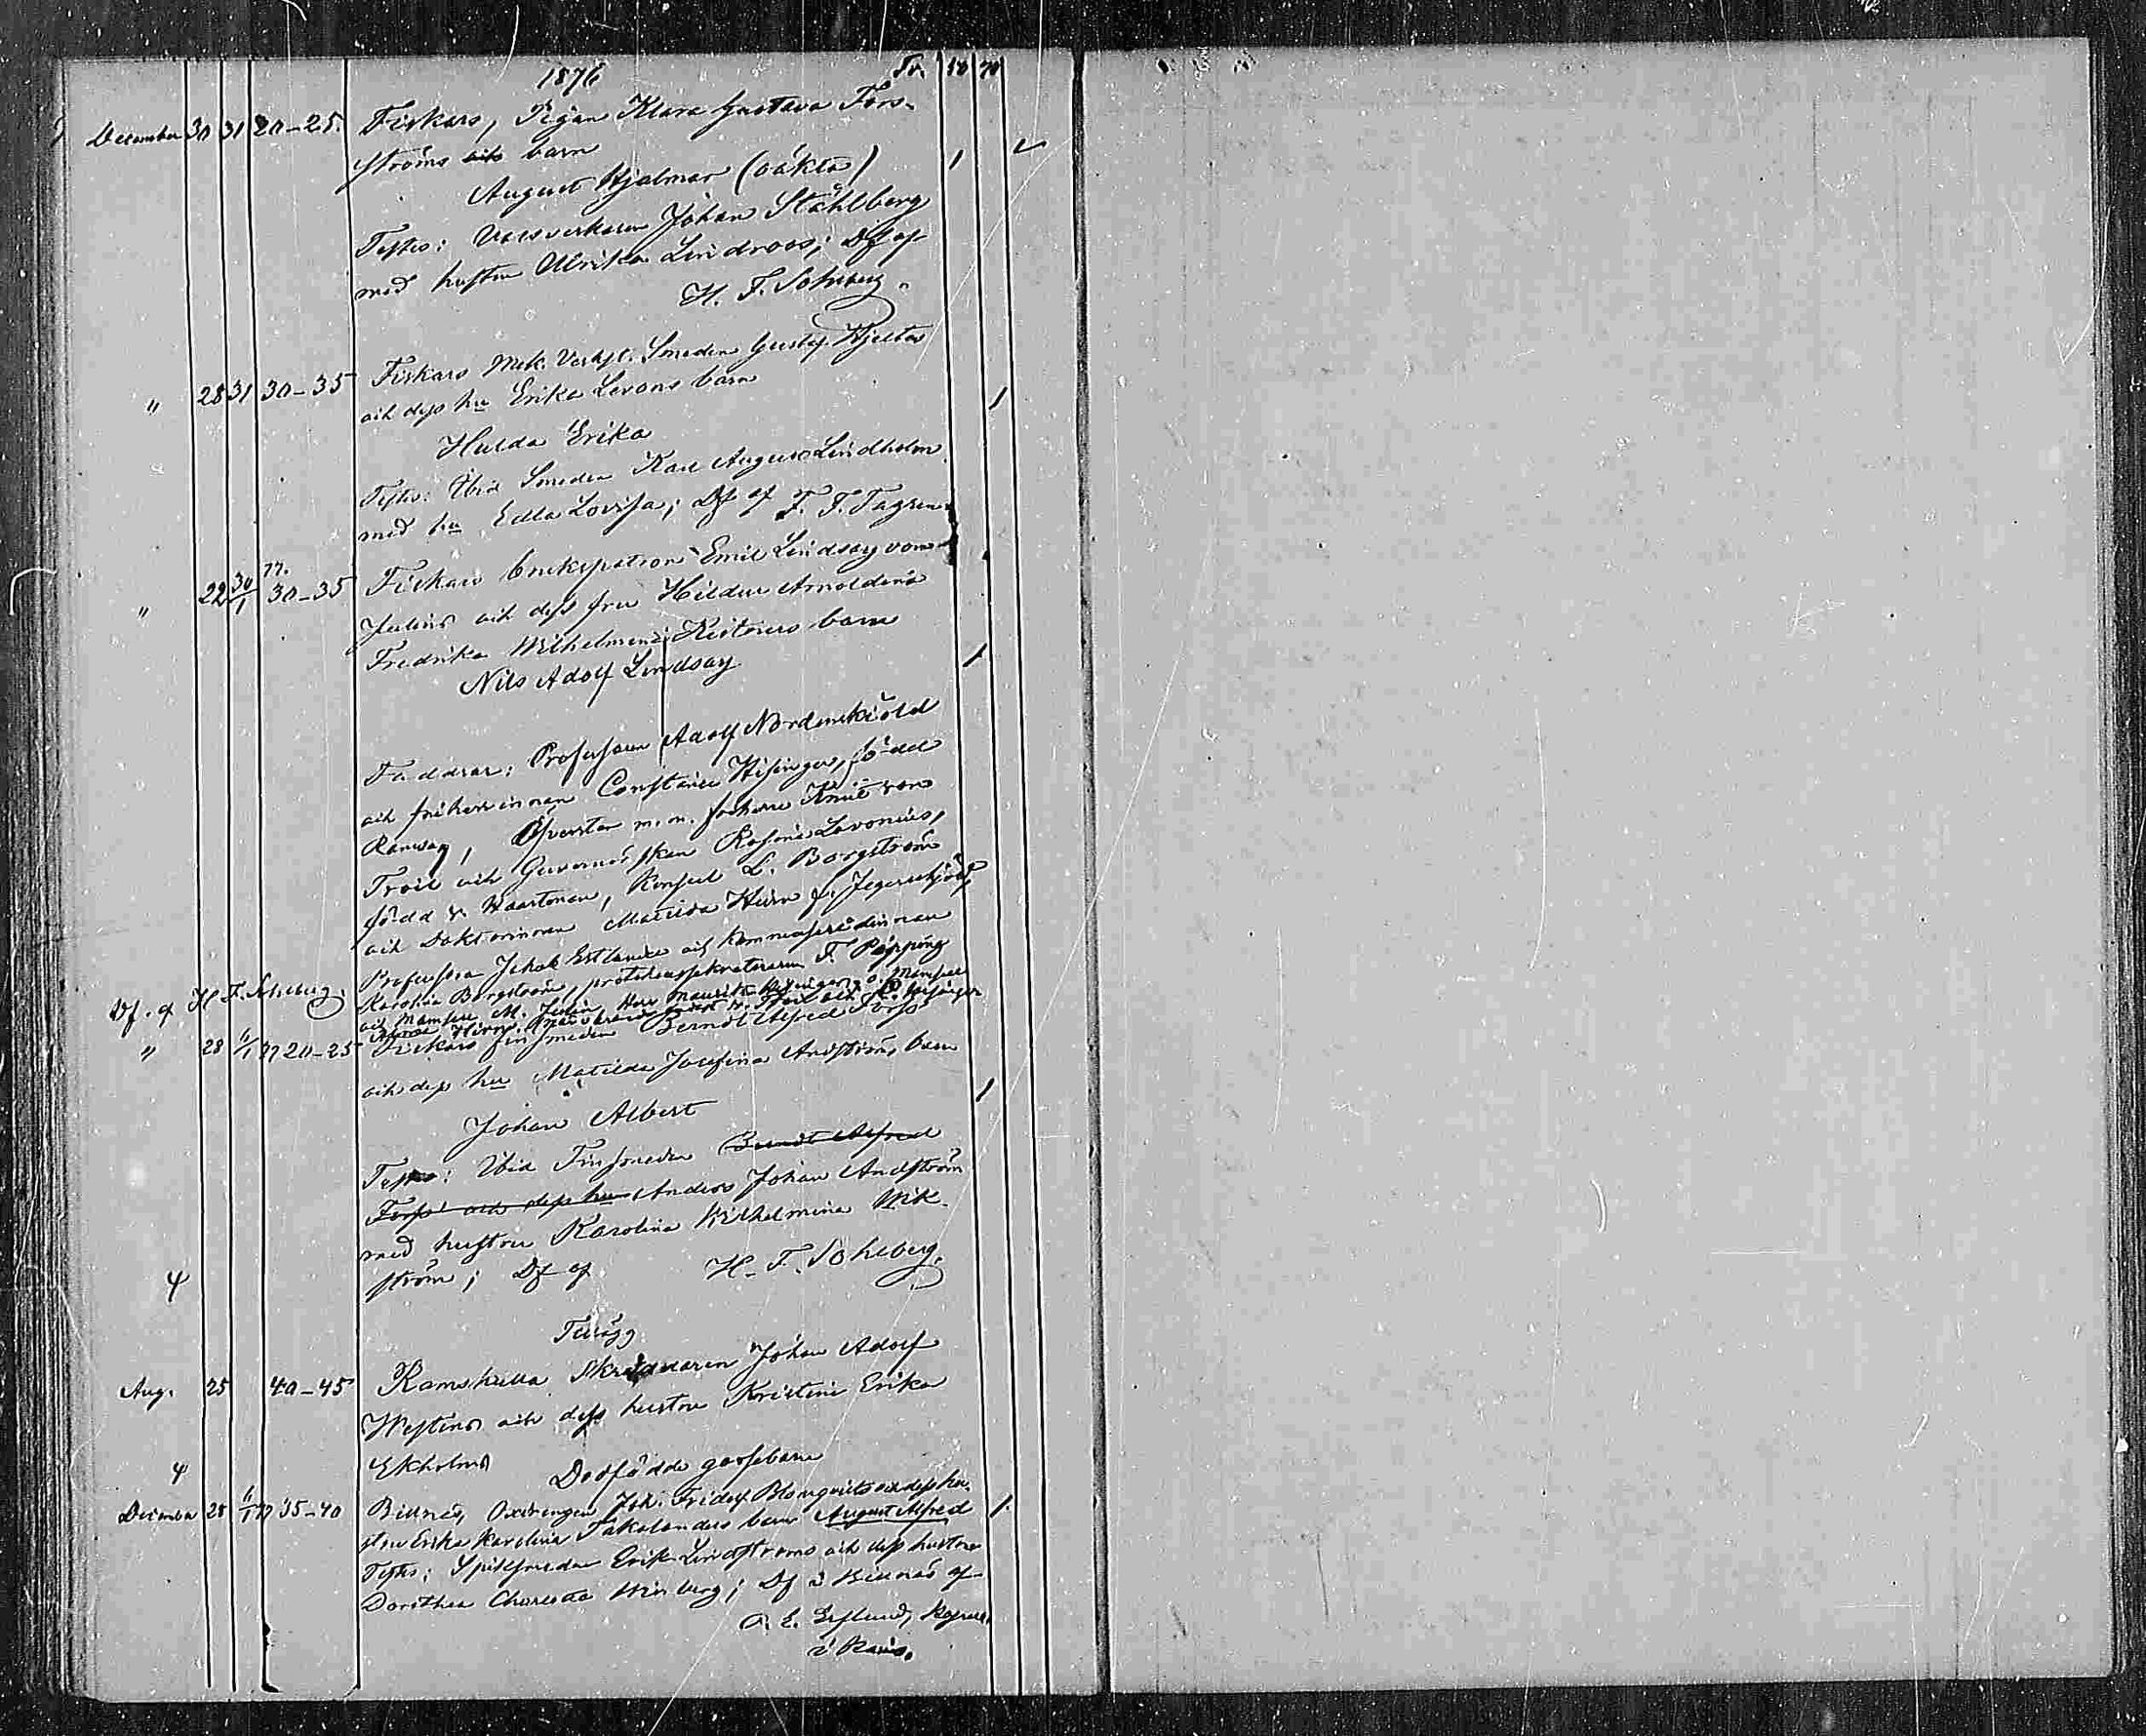 1876
Tr. 70 70
December 30 31 20-25. Fiskars, Pigan Klara Gustava Fors-
ströms barn
August Hjalmar (oäkta) 1
Testes: Johan Ståhlberg
med hustru Ulrika Lindroos; Df af
H. F. Sohlberg.
" 28 31 30-35 Fiskars Mek. Verkst. Smeden Gustaf Hjelts
och dess hu Erika Levons barn 1
Hulda Erika
Testes: Ibid Smeden Karl August Lindholm
med hu Edla Lovisa; Df af F. F. Fagren
" 22 30/1 77. 30-35 Fiskars Brukspatron Emil Lindsay von
Julins och dess fru Hildur Arnoldina
Fredrika Wilhelmina barn
Nils Adolf Lindsay 1
Faddrar: Professorn Adolf Nordenskiöld
och friherrinnan Constance Hisinger, född
Ramsay, Öfversten m.m. friherre Knut von
Troil och Guvernörskan Rosina Lavonius,
född v. Haartman, Konsul L. Borgström
och Doktorinnan Matilda Hirn f. Jegerschjöld,
Professorn Jakob Estlander och Kommerserådinnan
Karolina Borgström, protokollssekreteraren F. Pipping
och Mamsell M. Julin, Herr Mauritz Hisinger o. Mamsell
Hirn,
Df. af H. F. Sohlberg.
" 28 6/1 77 20-25 Fiskars finsmeden Berndt Alfred Forss
och dess hu Matilda Josefina Andströms barn 1
Johan Albert
Testes: Ibid Finsmeden Berndt Alfred
Forss och dess hu Anders Johan Andström
med hustru Karolina Wilhelmina Wik-
ström; Df af H. F. Sohlberg.
Tillägg
Aug. 25 40-45 Ramshulla Skräddaren Johan Adolf
Westens och dess hustru Kristina Erika
Ekholms Dödfödde gossebarn
December 28 6/1 77 35-40 Billnäs, Joh. Fridolf Blomqvists och dess hu-
stru Erika Karolina Takolanders barn August Alfred 1
Testes: Spiksmeden Erik Lindströms och dess hustru
Dorothea Charlotta Winberg; Df i Billnäs af
i Karis.